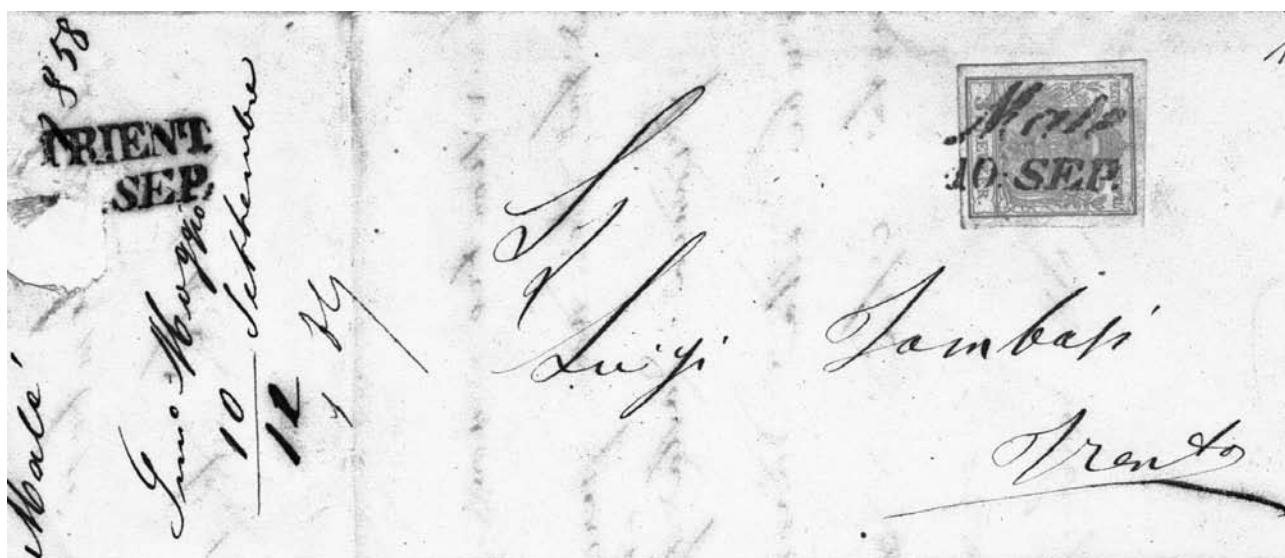 858
TRIENT.
SEP.
Malé
Maggio
10 Settembre
12
Malè
10. SEP.
Luigi Tambosi
Trento